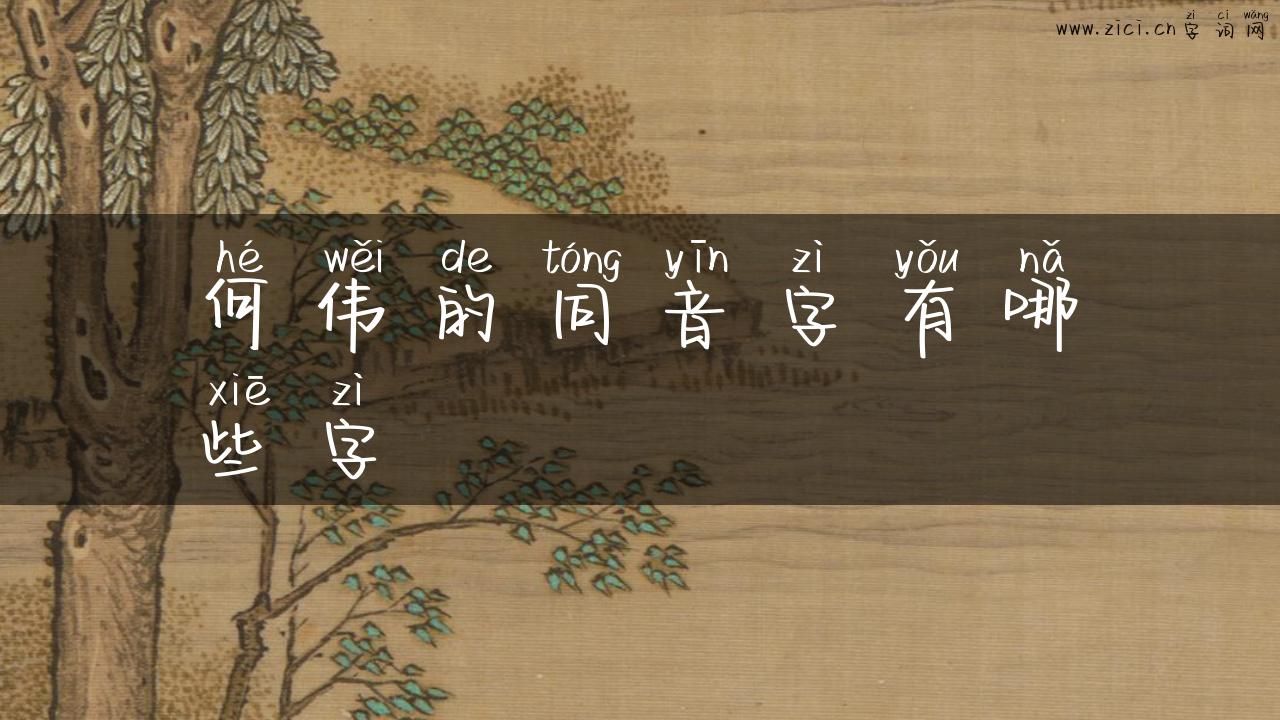 zì cí wǎng
www.zici.cn 字 词 网
hé wěi de tóng yīn zì yǒu nǎ
何 伟 的 同 音 字 有 哪
xiē zì
些 字